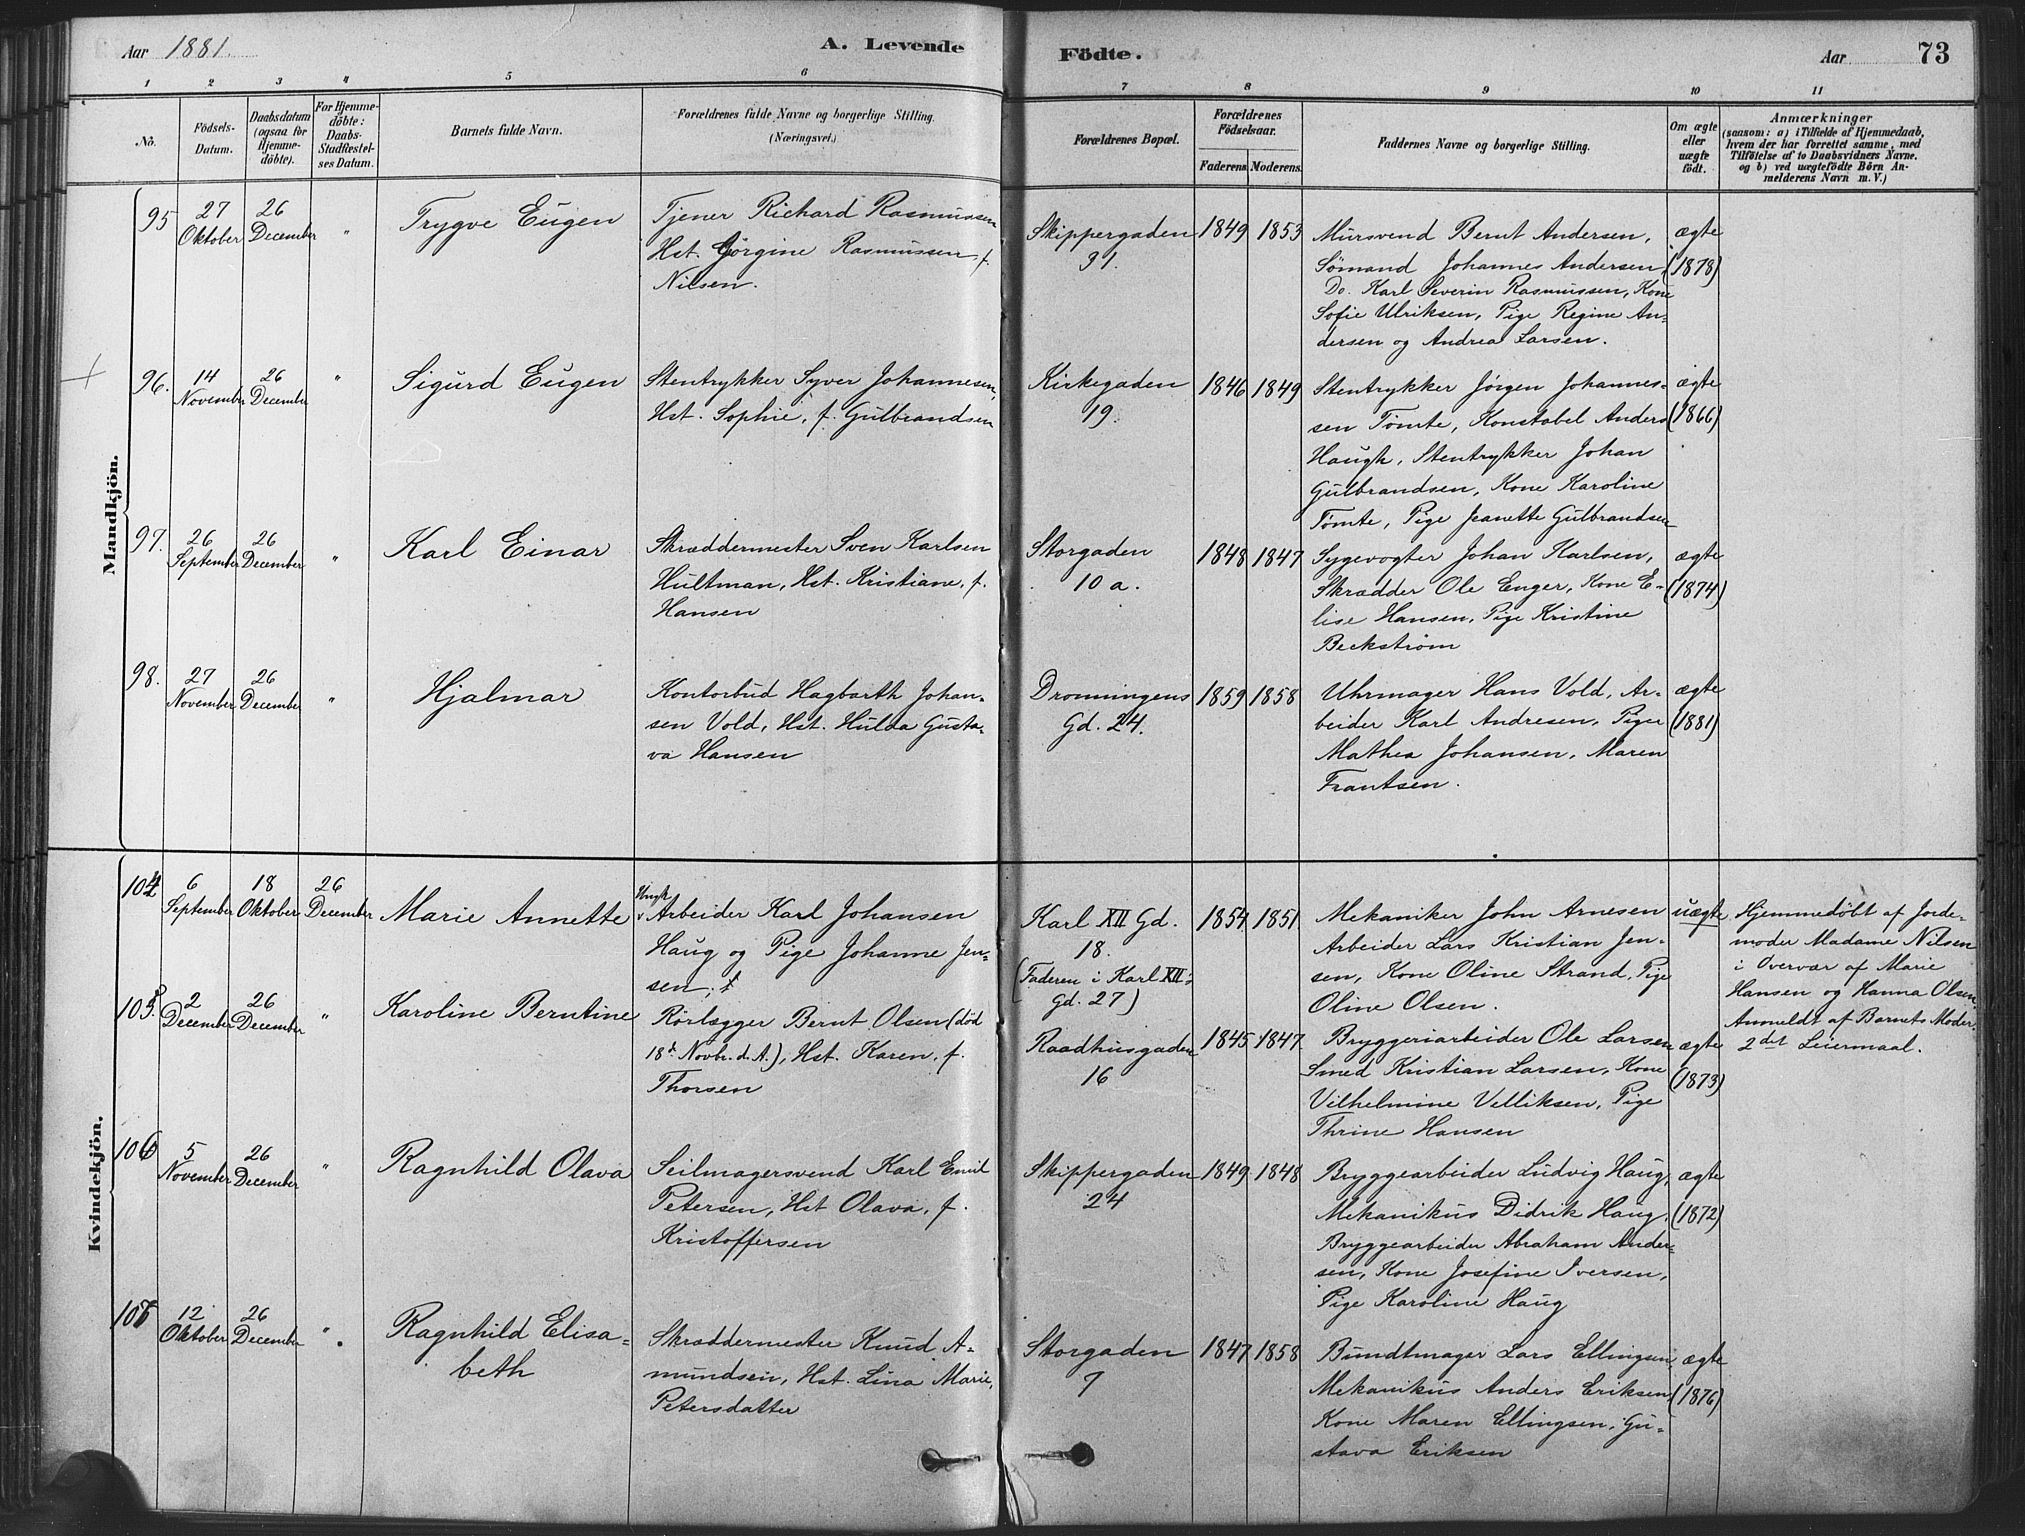 Aar 1881.
A. Levende Födte.
Aar
73
1 2 3 4 5 6 7 8 9 10 11
No.
Födsels-
Datum.
Daabsdatum
(ogsaa for
Hjemme-
döbte).
For Hjemme-
döbte:
Daabs-
Stadfæstel-
ses Datum.
Barnets fulde Navn.
Forældrenes fulde Navne og borgerlige Stilling.
(Næringsvei.)
Forældrenes Bopæl.
Forældrenes
Födselsaar.
Faderens. Moderens.
Faddernes Navne og borgerlige Stilling.
Om ægte
eller
uægte
födt.
Anmærkninger
(saasom: a) i Tilfælde af Hjemmedaab,
hvem der har forrettet samme, med
Tilföielse af to Daabsvidners Navne,
og b) ved uægtefödte Börn An-
melderens Navn m. V.)
Mandkjön.
95
27
Oktober
26
December
"
Trygve Eugen
Tjener Richard Rasmussen
Hst. Jörgine Rasmussen, f.
Nilsen.
Skippergaden
31.
1849
1853
Mursvend Bernt Andersen,
Sømand Johannes Andersen,
Do. Karl Severin Rasmussen, Kone
Sofie Ulriksen, Pige Regine An-
dersen og Andrea Larsen.
ægte
(1878)
96.
14
November
26
December
"
Sigurd Eugen
Stentrykker Syver Johannesen,
Hst. Sophie, f. Gulbrandsen
Kirkegaden
19.
1846
1849
Stentrykker Jørgen Johannes-
sen Tømte, Konstabel Anders
Haugh, Stentrykker Johan
Gulbrandsen, Kone Karoline
Tømte, Pige Jeanette Gulbrandsen
ægte
(1866)
97.
26
September
26
December
"
Karl Einar
Skræddermester Sven Karlsen
Hultman, Hst. Kristiane, f.
Hansen
Storgaden
10 a.
1848
1847
Sygevogter Johan Karlsen,
Skrædder Ole Enger, Kone E-
lise Hansen, Pige Kristine
Beckstrøm
ægte
(1874)
98.
27
November
26
December
"
Hjalmar
Kontorbud Hagbarth Johan-
sen Vold, Hst. Hulda Gusta-
va Hansen
Dronningens
Gd. 24.
1859
1858
Uhrmager Hans Vold, Ar-
beider Karl Andresen, Piger
Mathea Johansen, Maren
Frantsen.
ægte
(1881)
Kvindekjön.
104
6
September
18
Oktober
26
December
Marie Annette
Ungk.
Arbeider Karl Johansen
Haug og Pige Johanne Jen-
sen,
Karl XII Gd.
18.
(Faderen i Karl XII's
Gd. 27)
1854
1851
Mekaniker John Arnesen
Arbeider Lars Kristian Jen-
sen, Kone Oline Strand, Pige
Oline Olsen.
uægte
Hjemmedøbt af Jorde-
moder Madame Nilsen
i Overvær af Marie
Hansen og Hanna Olsen.
Anmeldt af Barnets Moder.
2det Leiermaal.
105.
2
December
26
December
"
Karoline Berntine
Rörlægger Bernt Olsen (død
18de Novbr. d. A.), Hst. Karen, f.
Thorsen
Raadhusgaden
16
1845
1847
Bryggeriarbeider Ole Larsen
Smed Kristian Larsen, Kone
Vilhelmine Velliksen, Pige
Thrine Hansen
ægte
(1873)
106
5
November
26
December
"
Ragnhild Olava
Seilmagersvend Karl Emil
Petersen, Hst Olava, f.
Kristoffersen
Skippergaden
24
1849
1848
Bryggearbeider Ludvig Haug,
Mekanikus Didrik Haug,
Bryggearbeider Abraham Ander-
sen, Kone Josefine Iversen,
Pige Karoline Haug
ægte
(1872)
107
12
Oktober
26
December
"
Ragnhild Elisa-
beth
Skræddermester Knud A-
mundsen, Hst. Lina Marie,
Petersdatter
Storgaden
7
1847
1858
Bundtmager Lars Ellingsen,
Mekanikus Anders Eriksen,
Kone Maren Ellingsen, Gu-
stava Eriksen
ægte
(1876)